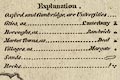 Explanation.
Oxford and Cambridge, are Universities
Cities, as Canterbury
Boroughs, as Sandwich
Market Towns, as Deal
Villages, as Margate
Sands,
Rocks,